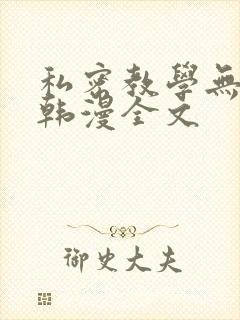 私密教學無
韩漫全文
御史大夫